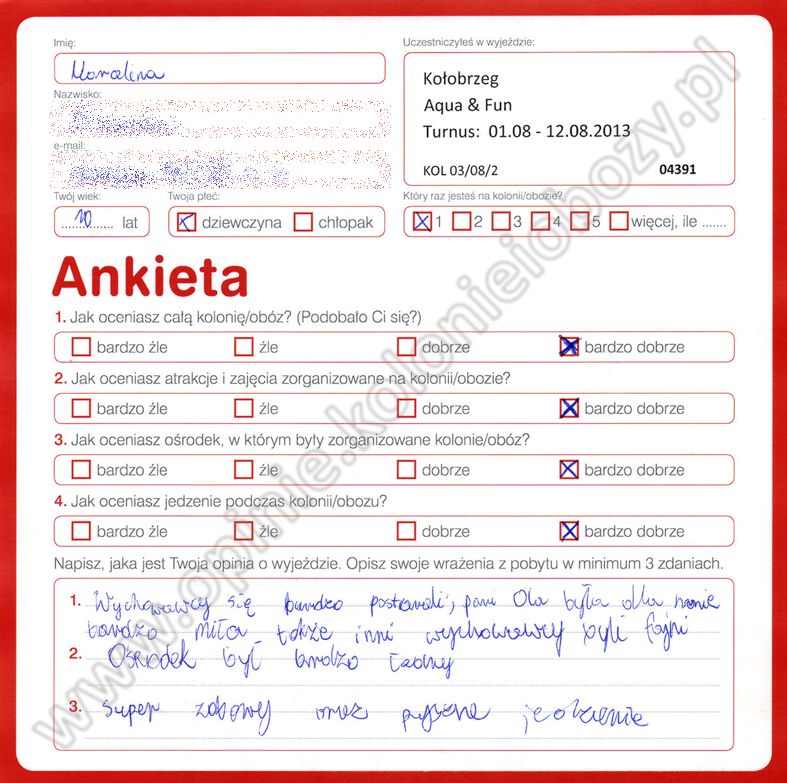 Imię:
Karolina
Nazwisko:
e-mail:
Twój wiek:
10 lat
Twoja płeć:
dziewczyna chłopak
Uczestniczyłeś w wyjeździe:
Kołobrzeg
Aqua & Fun
Turnus: 01.08 - 12.08.2013
KOL 03/08/2 04391
Który raz jesteś na kolonii/obozie?
1 2 3 4 5 więcej, ile .......
Ankieta
1. Jak oceniasz całą kolonię/obóz? (Podobało Ci się?)
bardzo źle źle dobrze bardzo dobrze
2. Jak oceniasz atrakcje i zajęcia zorganizowane na kolonii/obozie?
bardzo źle źle dobrze bardzo dobrze
3. Jak oceniasz ośrodek, w którym były zorganizowane kolonie/obóz?
bardzo źle źle dobrze bardzo dobrze
4. Jak oceniasz jedzenie podczas kolonii/obozu?
bardzo źle źle dobrze bardzo dobrze
Napisz, jaka jest Twoja opinia o wyjeździe. Opisz swoje wrażenia z pobytu w minimum 3 zdaniach.
1. Wychowawcy się bardzo postarali, pani Ola była dla mnie
bardzo miła także inni wychowawcy byli fajni
2. Ośrodek był bardzo ładny
3. Super zabawy oraz pyszne jedzenie
www.opinie.kolonieiobozy.pl